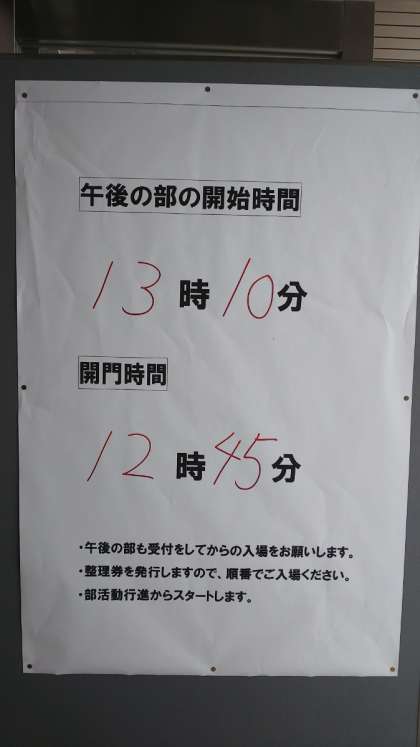 午後の部の開始時間
13時10分
開門時間
12時45分
・午後の部も受付をしてからの入場をお願いします。
・整理券を発行しますので、順番でご入場ください。
・部活動行進からスタートします。